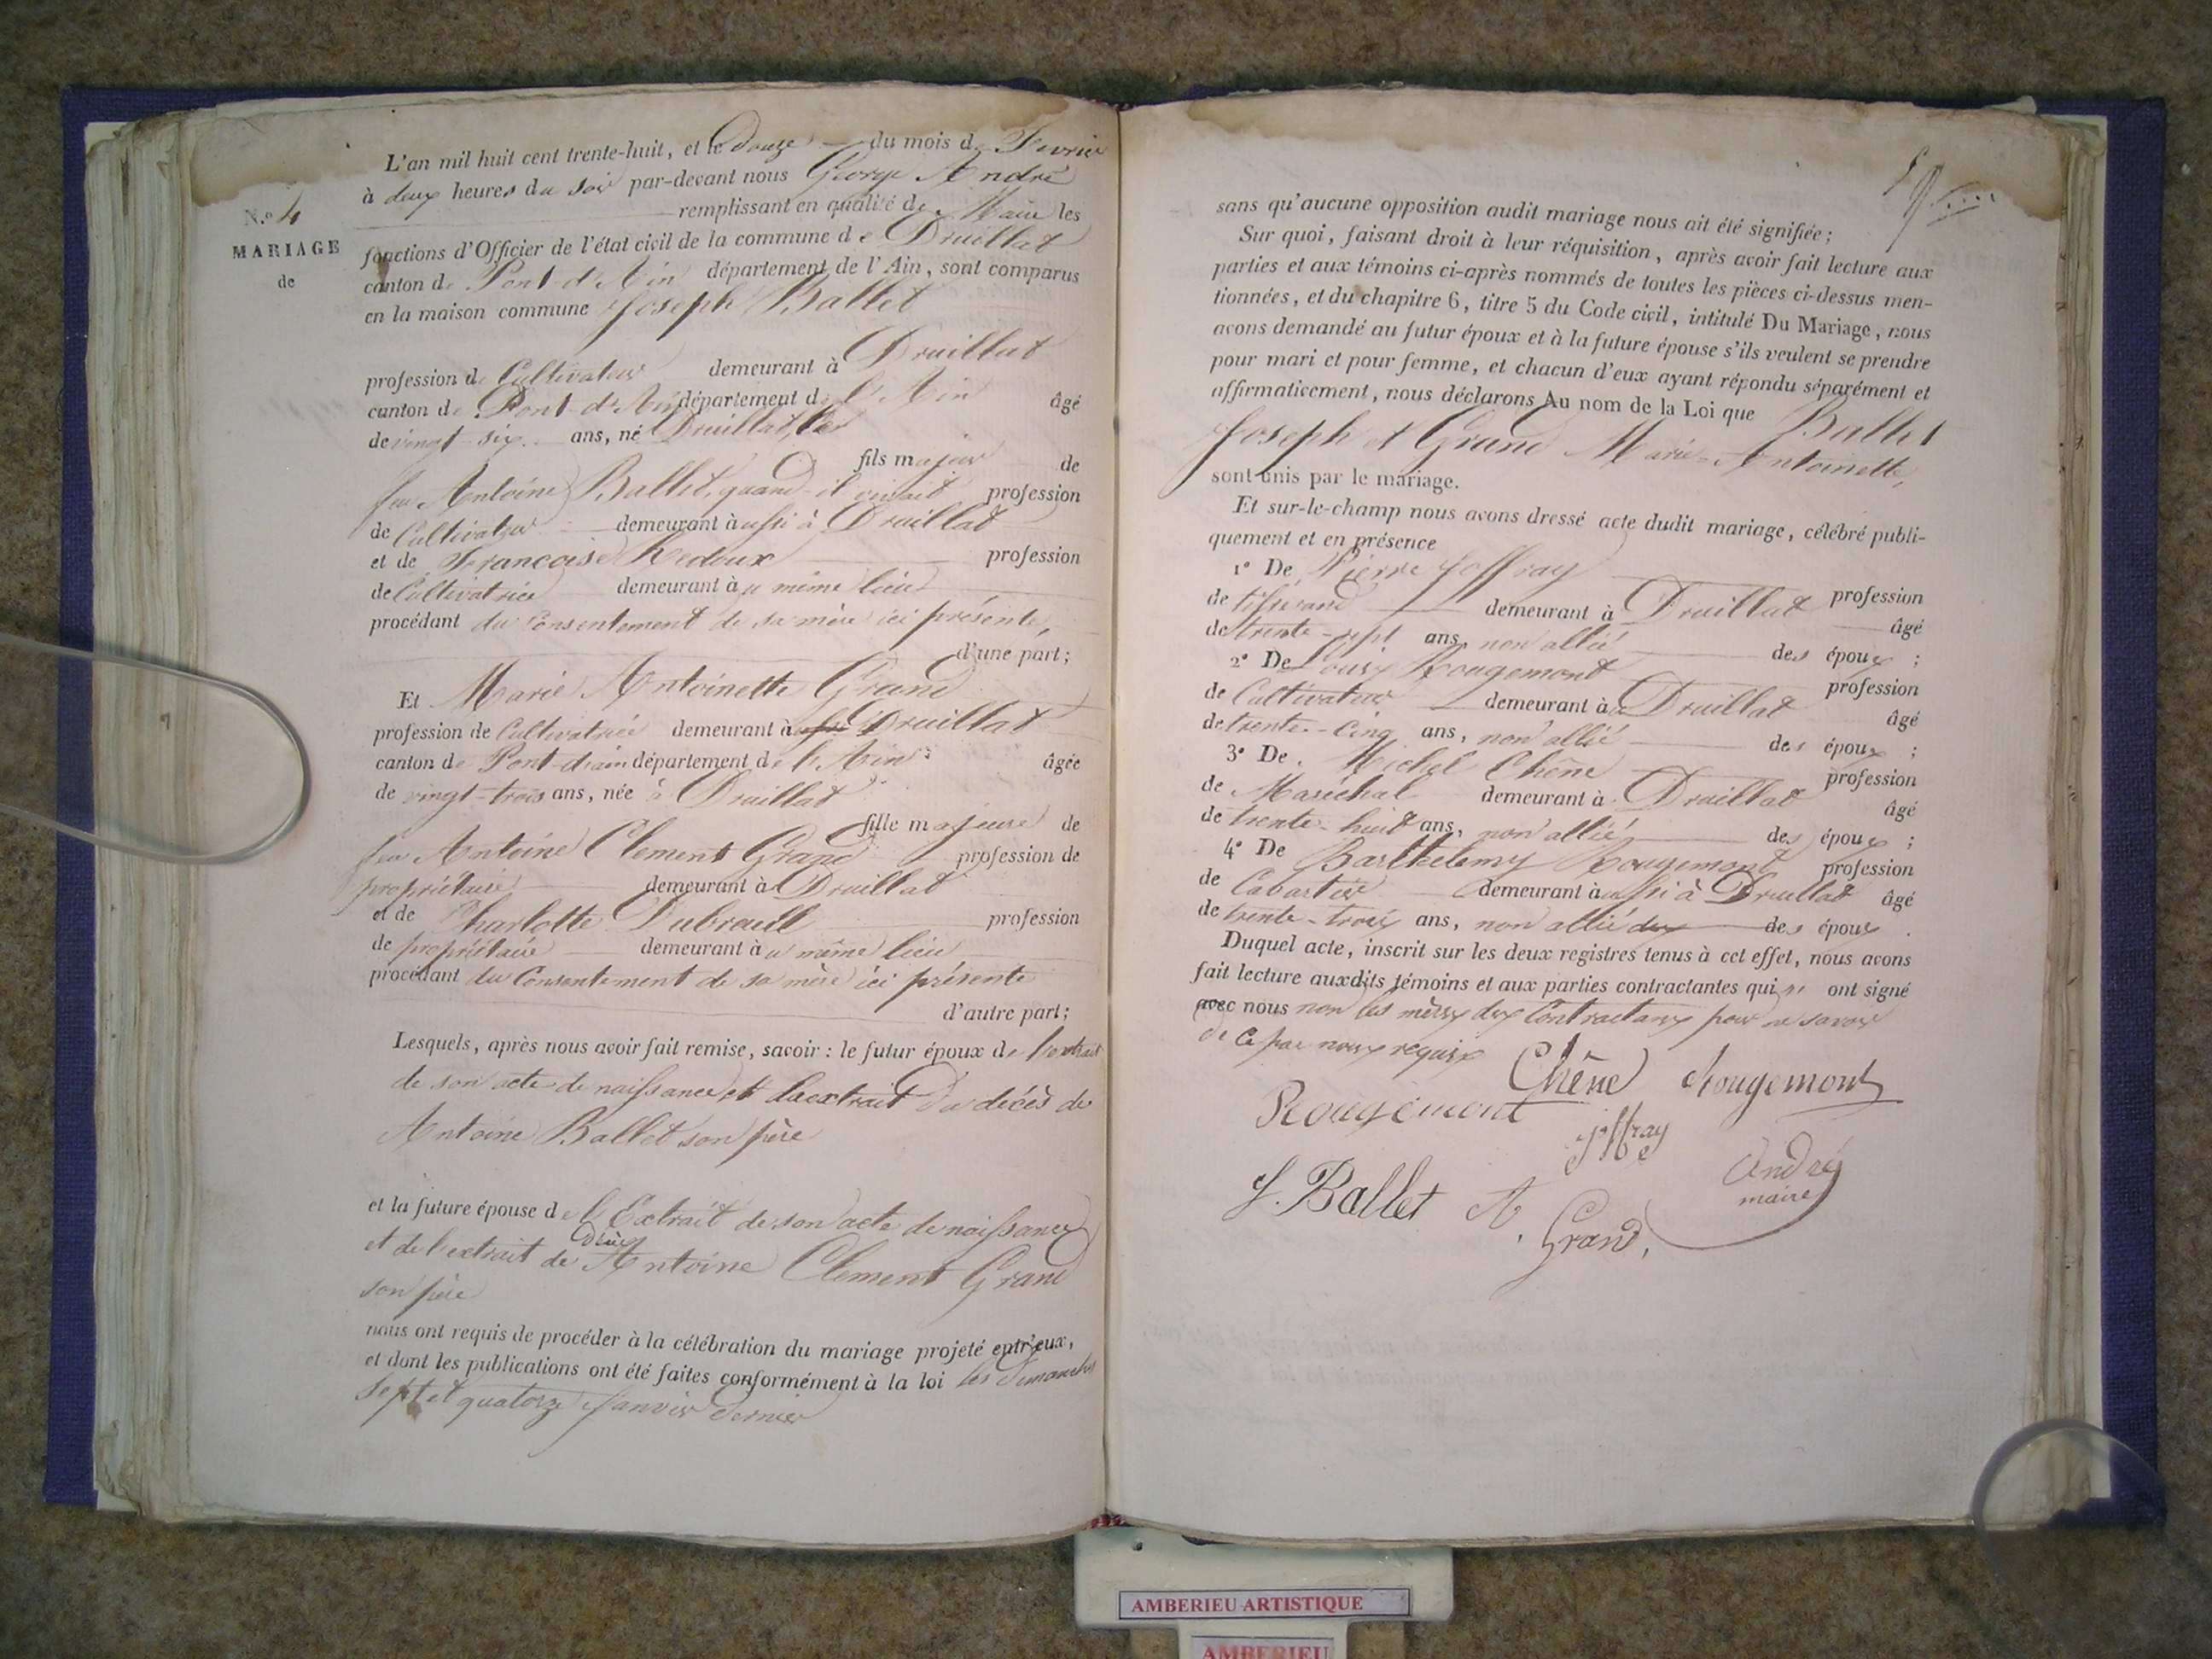 L'an mil huit cent trente-huit, et le Douze du mois de Fevrier
à deux heures du soir par-devant nous George André
remplissant en qualité de Maire les
N.º 4
MARIAGE
de
fonctions d'Officier de l'état civil de la commune de Druillat
canton de Pont d'Ain département de l'Ain, sont comparus
en la maison commune Joseph Ballet
profession de Cultivateur demeurant à Druillat
canton de Pont-d'Ain département de l'Ain âgé
de vingt-six ans, né Druillat
fils majeur de
feu Antoine Ballet, quand-il vivait profession
de Cultivateur demeurant aussi à Druillat
et de Francoise Redoux profession
de Cultivatrice demeurant au même lieu
procédant du Consentement de sa mère ici présente,
d'une part;
Et Marie Antoinette Grand
profession de Cultivatrice demeurant à Druillat
canton de Pont-d'ain département de l'Ain âgée
de vingt-trois ans, née à Druillat
fille majeure de
feu Antoine Clement Grand profession de
propriétaire demeurant à Druillat
et de Charlotte Dubreuil profession
de propriétaire demeurant au même lieu
procédant du Consentement de sa mère ici présente
d'autre part;
Lesquels, après nous avoir fait remise, savoir: le futur époux de l'extrait
de son acte de naissance et de extrait du décès de
Antoine Ballet son père
et la future épouse de l'Extrait de son acte de naissance
et de l'extrait de décès Antoine Clement Grand
son père
nous ont requis de procéder à la célébration du mariage projeté entr'eux,
et dont les publications ont été faites conformément à la loi les Dimanches
sept et quatorze Janvier dernier
sans qu'aucune opposition audit mariage nous ait été signifiée;
Sur quoi, faisant droit à leur réquisition, après avoir fait lecture aux
parties et aux témoins ci-après nommés de toutes les pièces ci-dessus men-
tionnées, et du chapitre 6, titre 5 du Code civil, intitulé Du Mariage, nous
avons demandé au futur époux et à la future épouse s'ils veulent se prendre
pour mari et pour femme, et chacun d'eux ayant répondu séparément et
affirmativement, nous déclarons Au nom de la Loi que Ballet
Joseph et Grand Marie-Antoinette,
sont unis par le mariage.
Et sur-le-champ nous avons dressé acte dudit mariage, célébré publi-
quement et en présence
1º De Pierre Joffray profession
de tisserand demeurant à Druillat âgé
de trente-sept ans, non allié des époux;
2º De Louis Rougemont profession
de Cultivateur demeurant à Druillat âgé
de trente-Cinq ans, non allié des époux;
3º De Michel Chêne profession
de Maréchal demeurant à Druillat âgé
de trente-huit ans, non allié des époux;
4º De Barthelemy Rougemont profession
de Cabartier demeurant aussi à Druillat âgé
de trente-trois ans, non allié des époux.
Duquel acte, inscrit sur les deux registres tenus à cet effet, nous avons
fait lecture auxdits témoins et aux parties contractantes qui ont signé
avec nous non les mères des Contractans pour ne savoir
de ce par nous requis
Chêne Rougemont
Rougemont
Joffray
André
maire
J. Ballet A. Grand.
AMBERIEU ARTISTIQUE
AMBERIEU